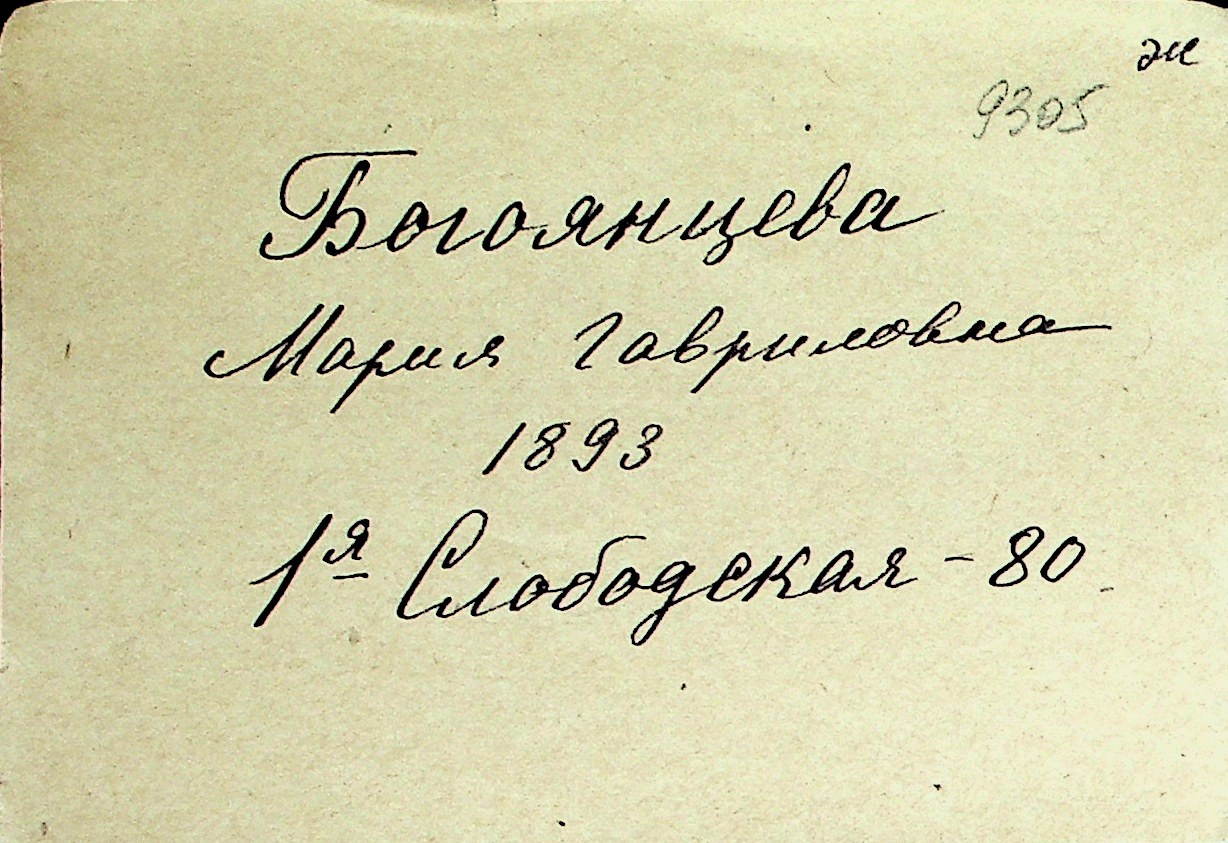 эк
9305
Богоянцева
Мария Гавриловна
1893
1я Слободская - 80